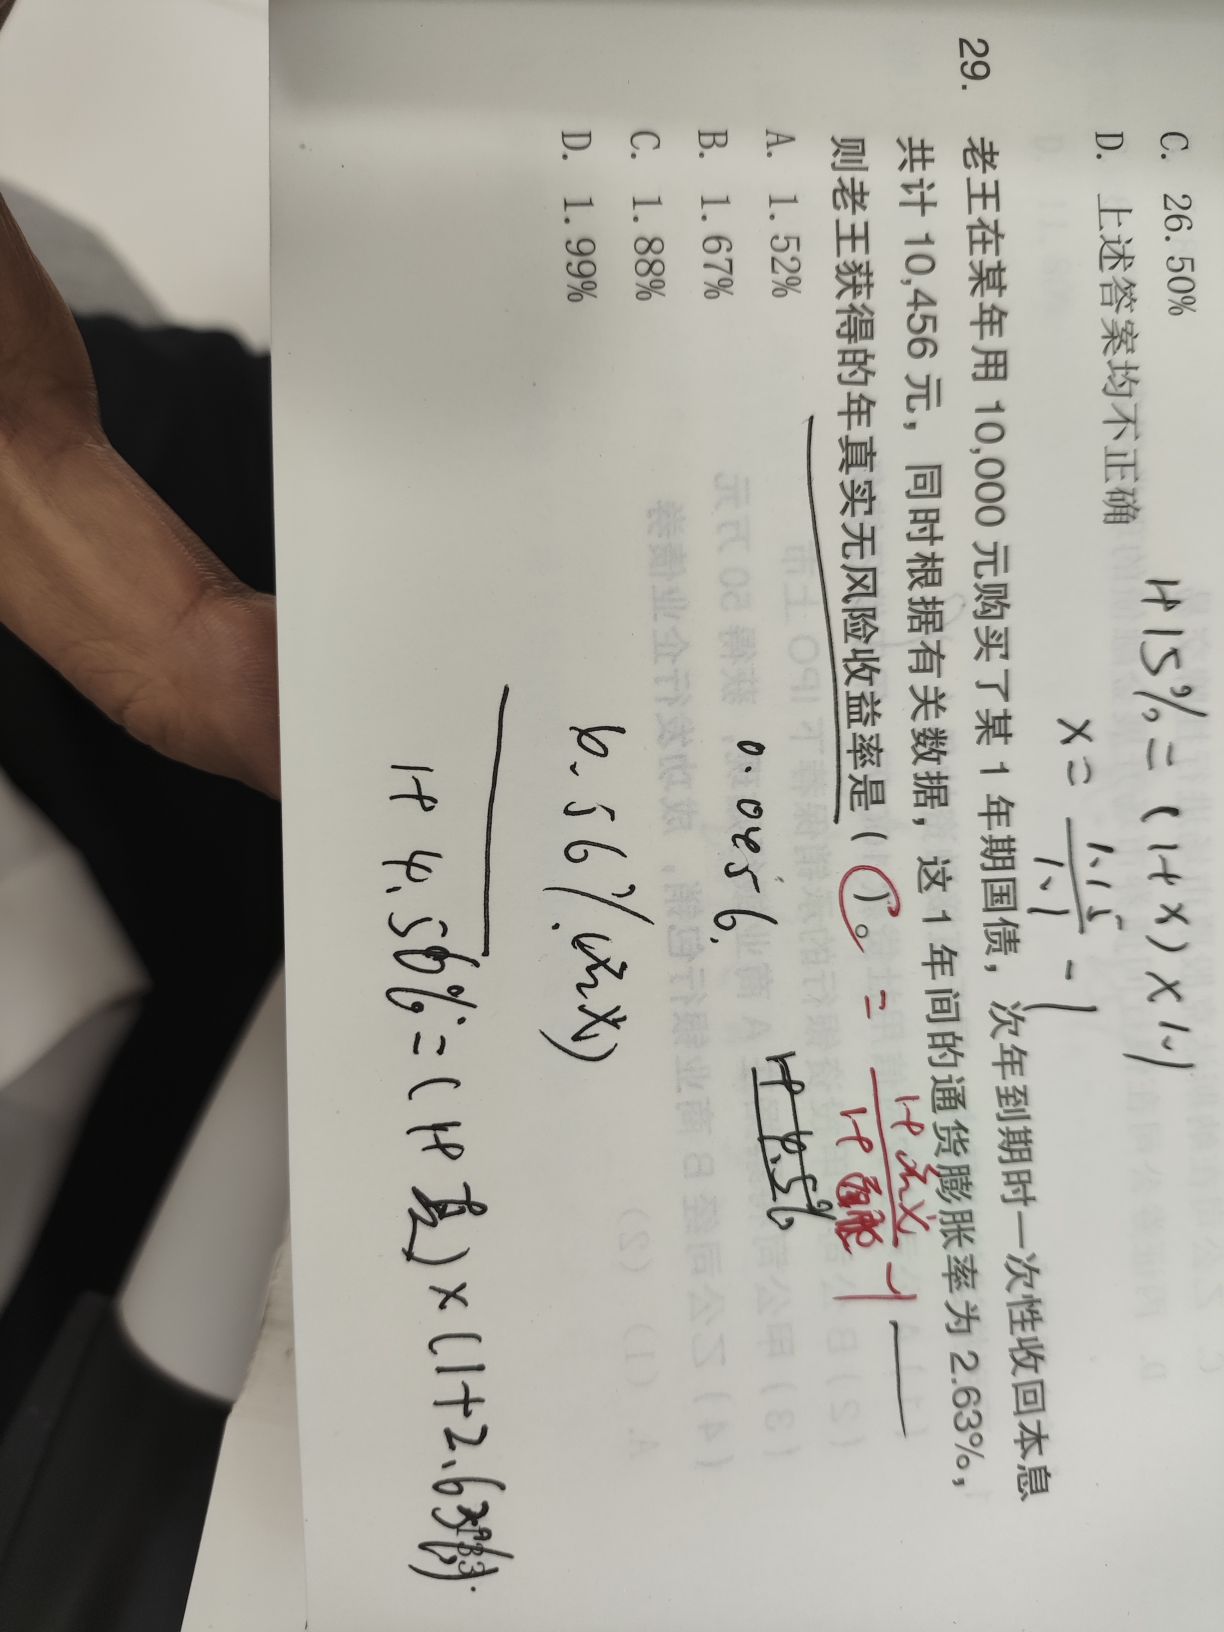 C. 26.50%
D. 上述答案均不正确
1+15%=(1+x)×1.1
x=1.15/1.1-1
29. 老王在某年用 10,000 元购买了某 1 年期国债，次年到期时一次性收回本息
共计 10,456 元，同时根据有关数据，这 1 年间的通货膨胀率为 2.63%，
则老王获得的年真实无风险收益率是（ ）。
=1+名义/1+通胀-1
A. 1.52%
1+4.56
B. 1.67%
0.0456
C. 1.88%
D. 1.99%
4.56%(名义)
1+4.56%=(1+真)×(1+2.63%)